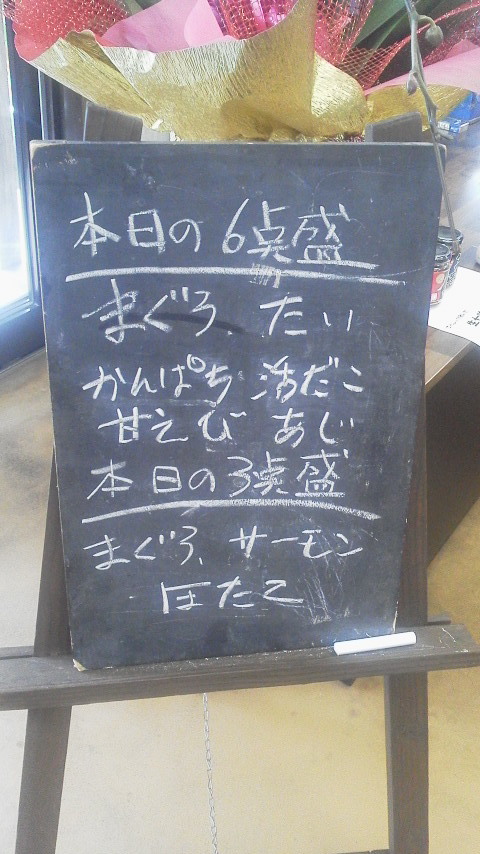 本日の6点盛
まぐろ、たい
かんぱち 活だこ
甘えび あじ
本日の3点盛
まぐろ、サーモン
ほたて